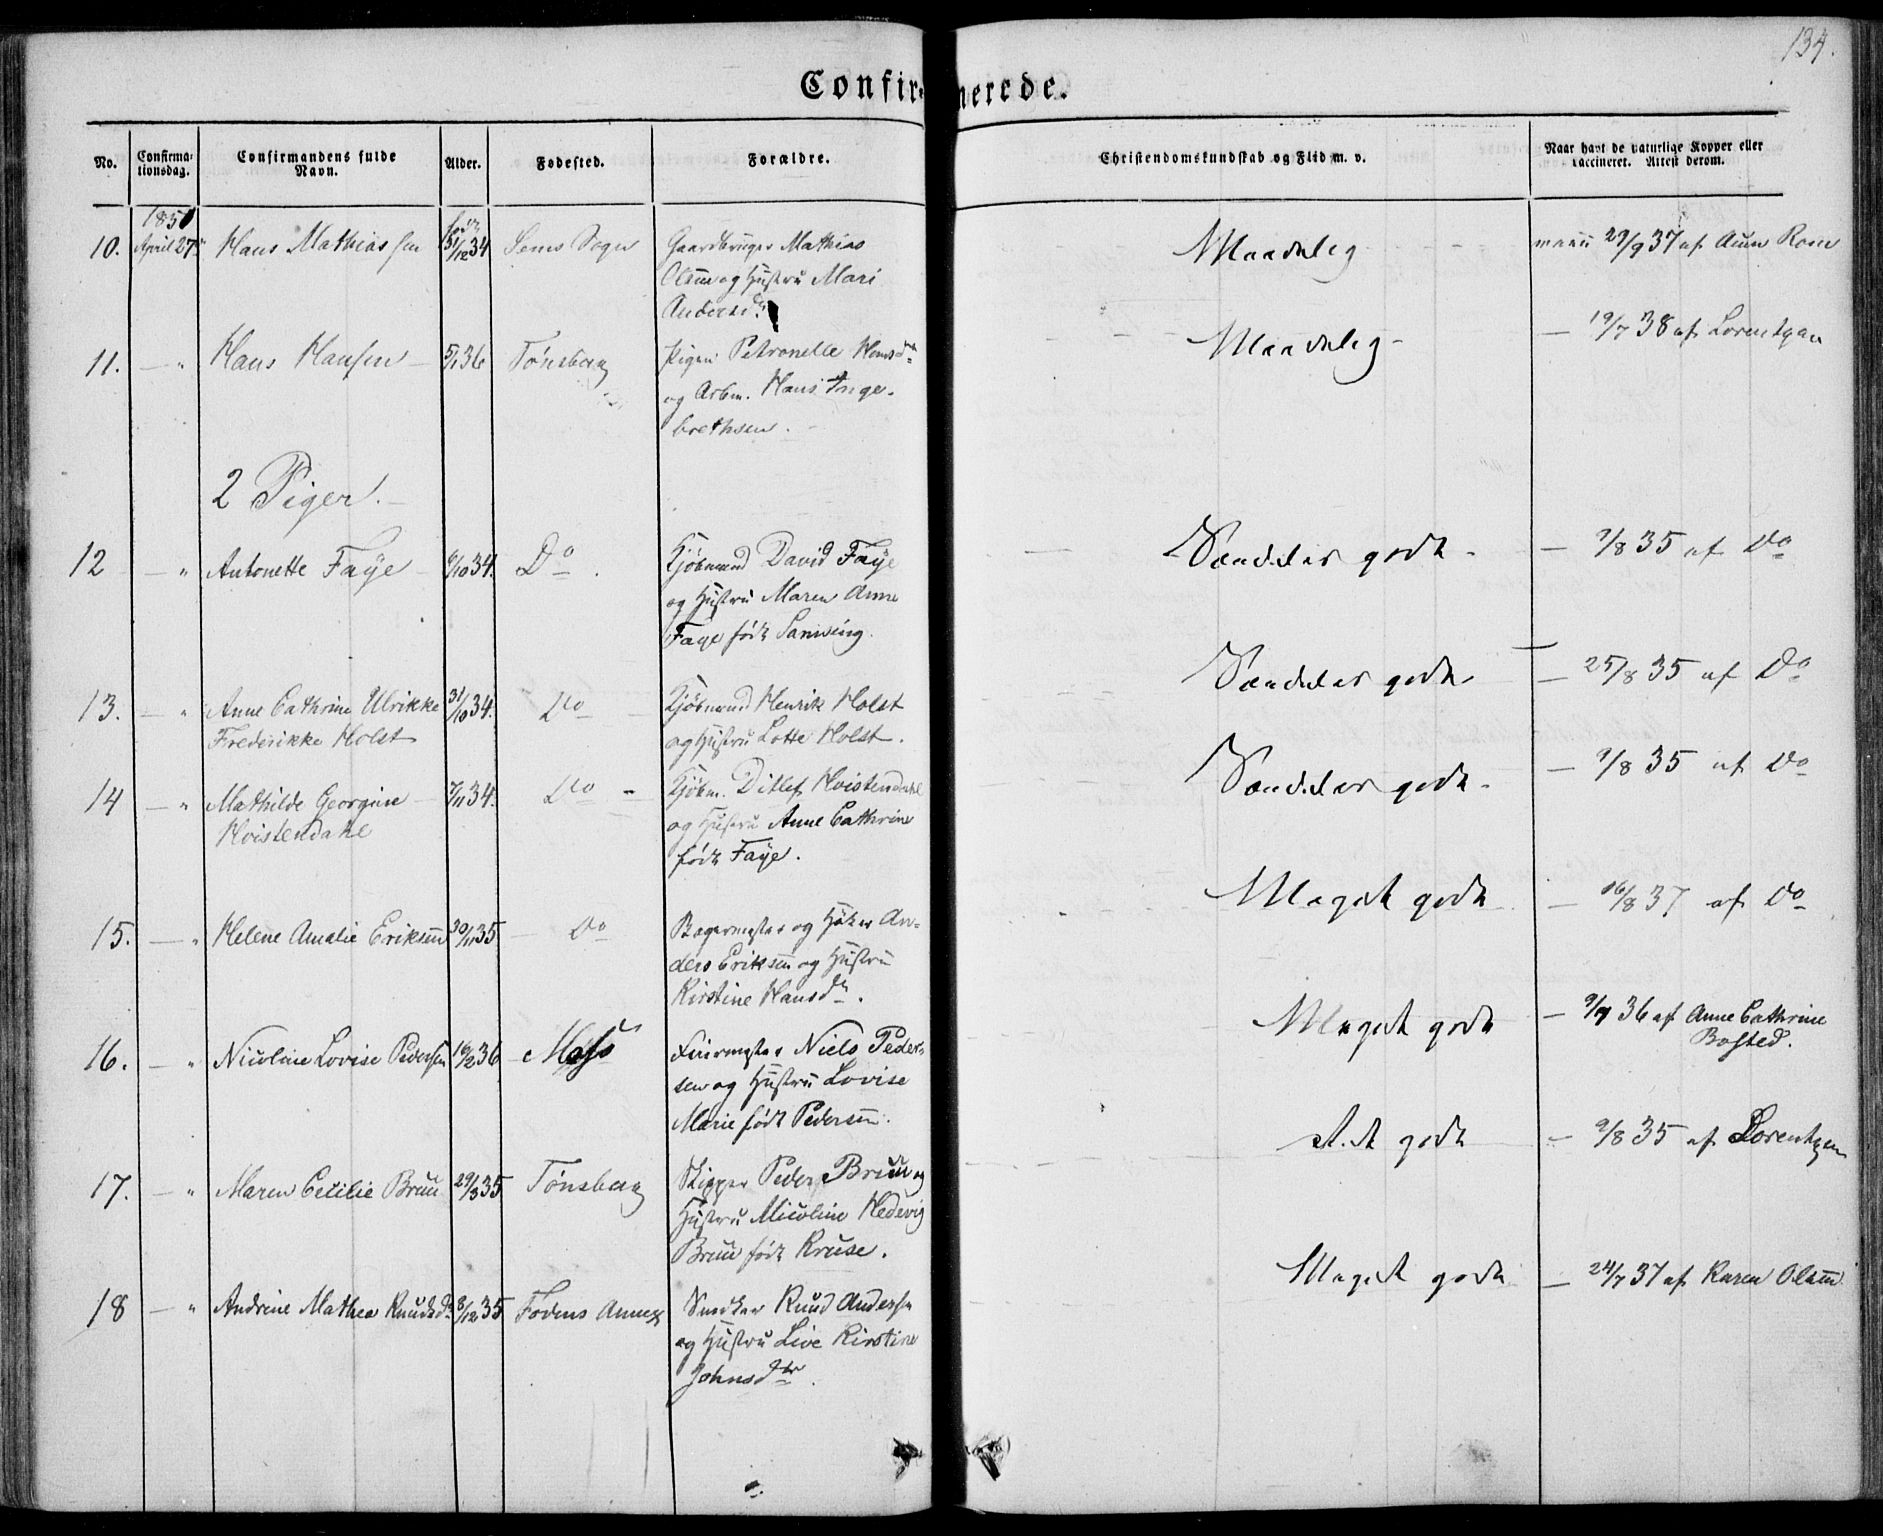 134.
Confirmerede.
No. Confirmationsdag. Confirmandens fulde Navn. Alder. Fødested. Forældre. Christendomskundskab og Flid m. v. Naar havt de naturlige Kopper eller vaccineret. Attest derom.
1851
10. April 27 Hans Mathiassen født 31/12 34 Sems Sogn Gaardbruger Mathias
Olsen og Hustru Mari
Andersd.
Maadelig 29/9 37 af
11. — " Hans Hansen 5/1 36 Tønsberg Pigen Petronelle Hansd.
og Arbm. Hans Inge-
brethsen.
Maadelig — 19/7 38 af Lorentzen
2 Piger.
12 — " Antonette Faye 6/10 34. Do Kjøbmand David Faye
og Hustru Maren Anne
Faye født
Særdeles godt — 9/8 35 af Do
13. — " Anne Cathrine Ulrikke 31/10 34. Do Kjøbmand Henrik Holst
Frederikke Holst og Hustru Lotte Holst.
Særdeles godt — 25/8 35 af Do
14 — " Mathilde Georgine 7/11 34. Do Kjøbm. Ditlef Hvistendahl
Hvistendahl og Hustru Anne Cathrine
født Faye.
Særdeles godt — 9/8 35 af Do
15. — " Helene Amalie Eriksen 30/11 35 Do Bagermester og Høker An-
ders Eriksen og Hustru
Kirstine Hansd.
Meget godt — 16/8 37 af Do
16. — " Nicoline Lovise Pedersen 16/2 36 Moss Niels Peder-
sen og Hustru Lovise
Marie født Pedersen.
Meget godt — 9/9 36 af Anne Cathrine
Bosted.
17. — " Maren Cecilie Bruu 29/3 35 Tønsberg Skipper Peder Bruu og
Hustru Nicoline Hedevig
Bruu født Kruse.
godt — 9/8 35 af Lorentzen
18 — " Andrine Mathea Knudsd. 8/12 35 Fodens Annex Snedker Knud Andersen
og Hustru Live Kirstine
Johnsdtr.
Meget godt — 24/7 37 af Karen Olsen